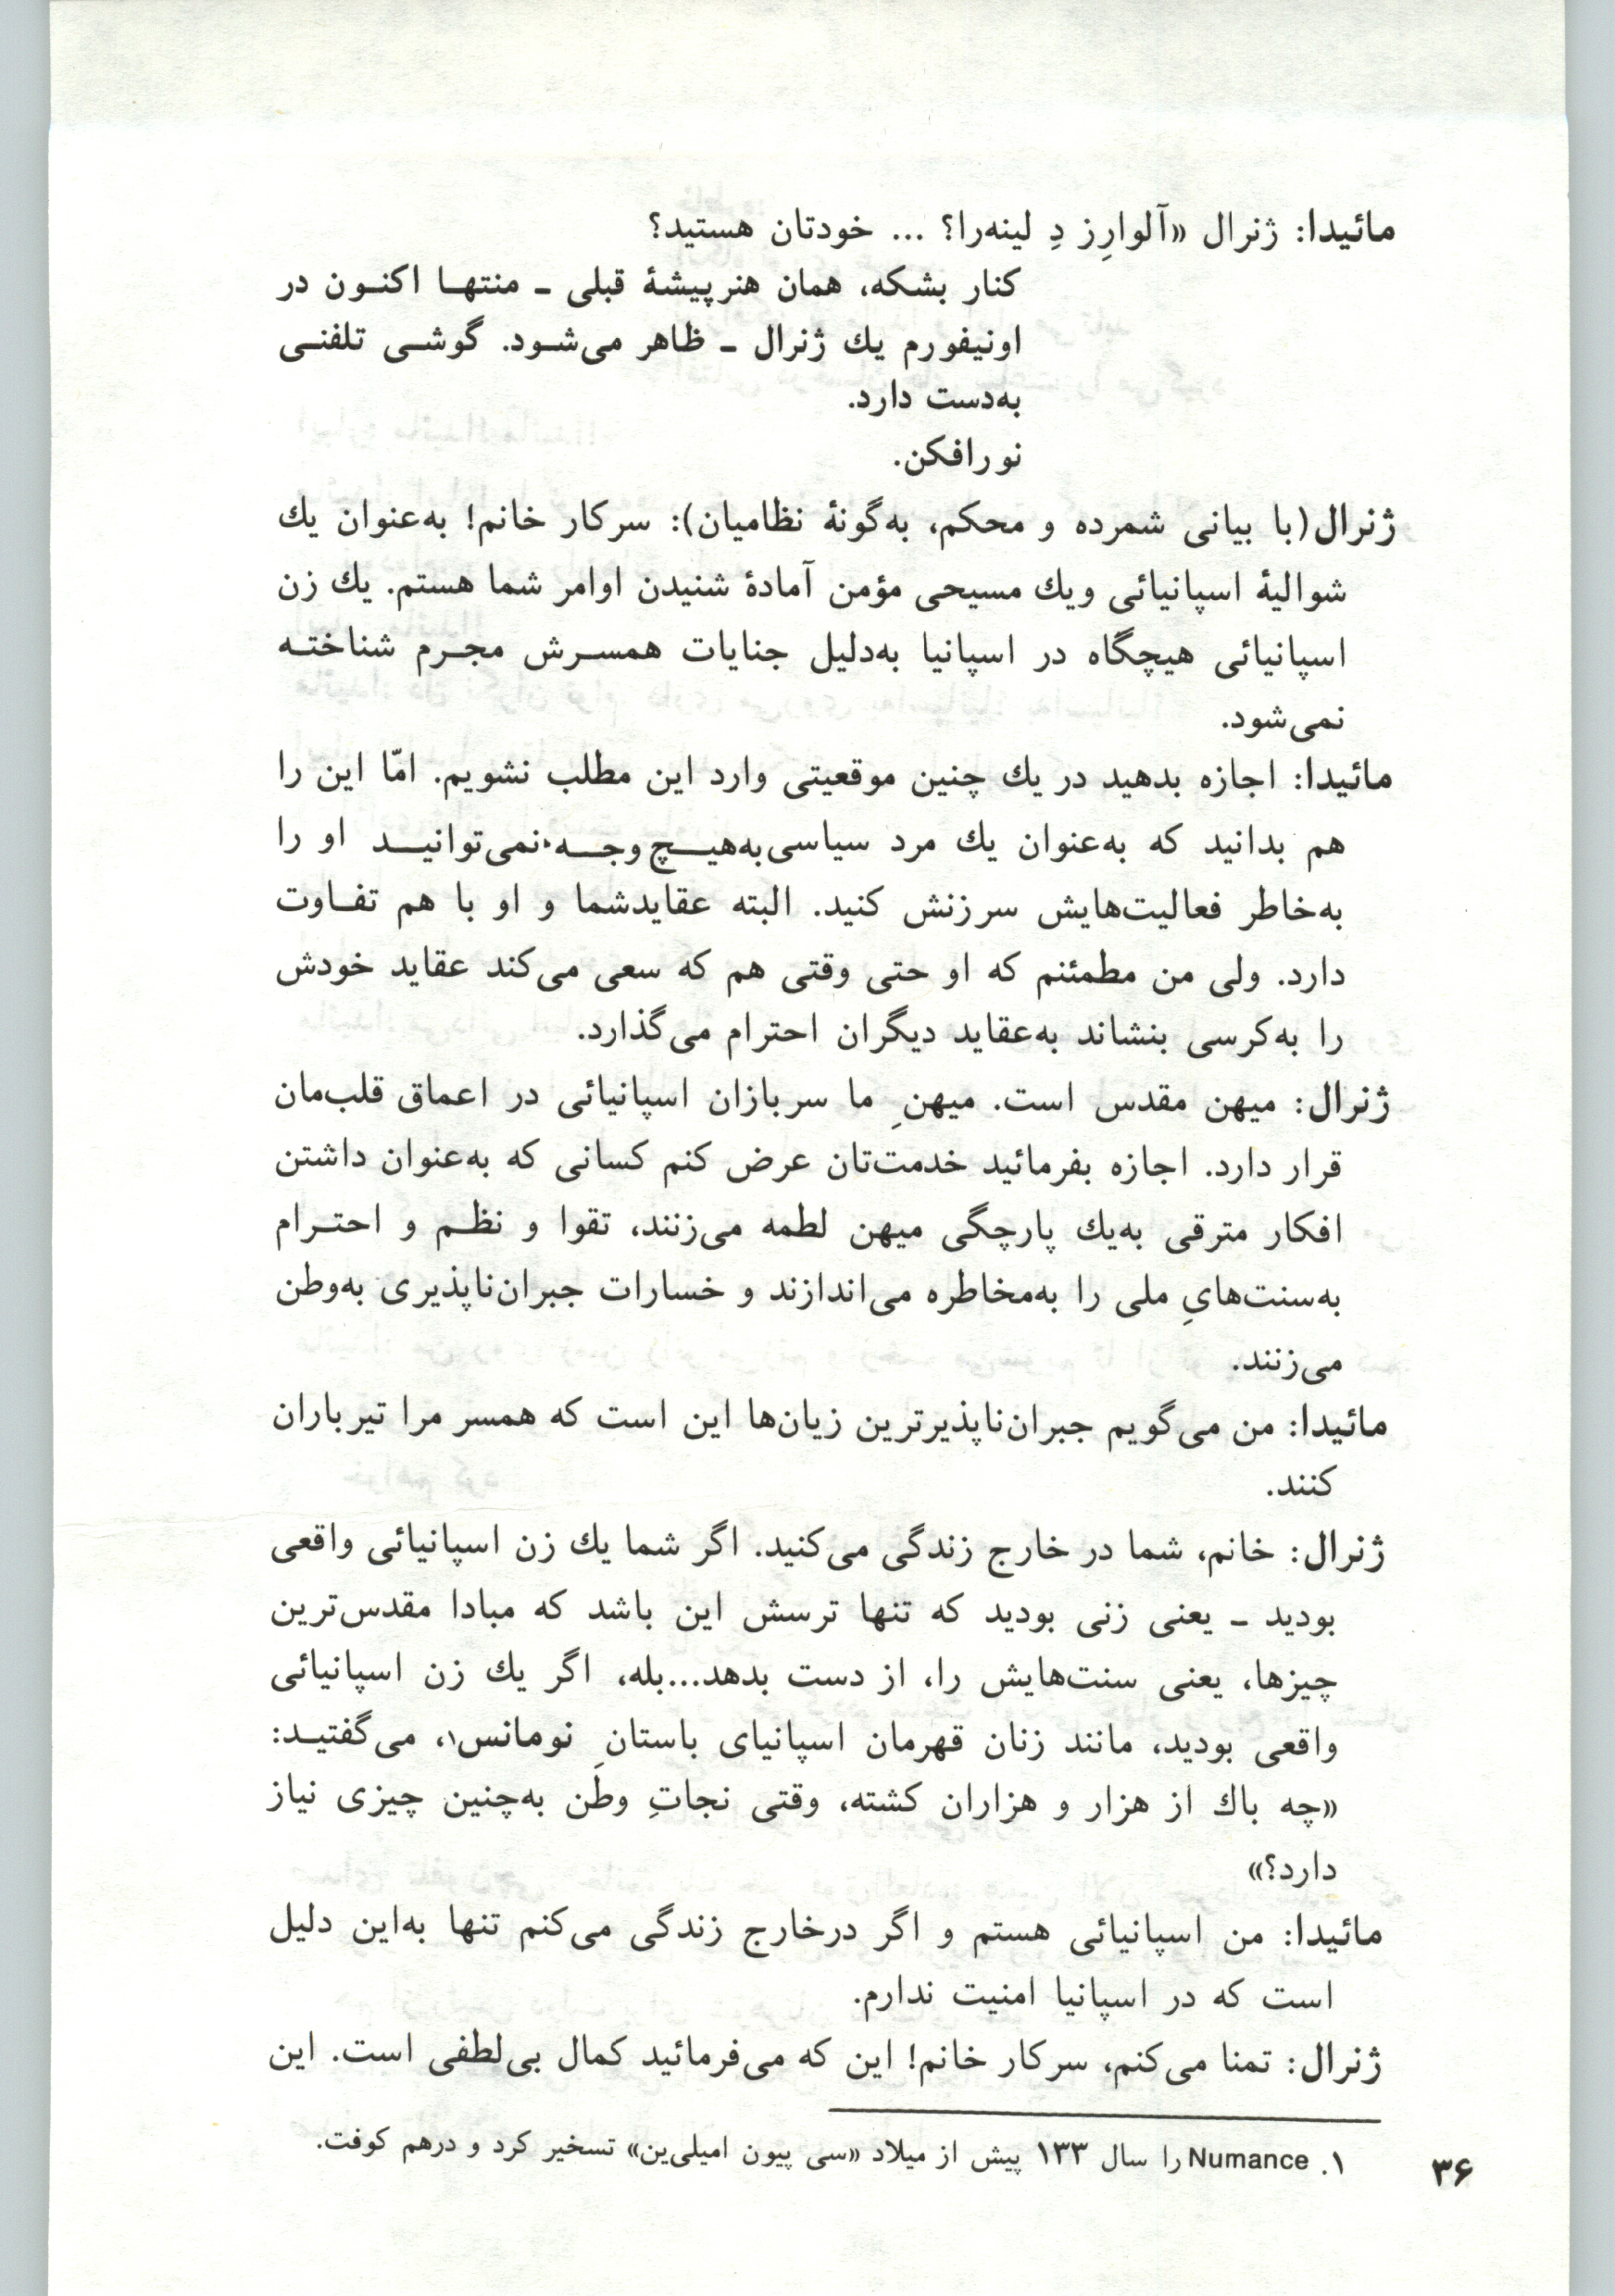 مائیدا: ژنرال «آلوارِز دِ لینه‌را؟ ... خودتان هستید؟
کنار بشکه، همان هنرپیشهٔ قبلی ـ منتهـا اکنـون در
اونیفورم یك ژنرال ـ ظاهر می‌شـود. گوشـی تلفنـی
به‌دست دارد.
نورافکن.
ژنرال(با بیانی شمرده و محکم، به‌گونهٔ نظامیان): سرکار خانم! به‌عنوان یك
شوالیهٔ اسپانیائی ویك مسیحی مؤمن آمادهٔ شنیدن اوامر شما هستم. یك زن
اسپانیائی هیچگاه در اسپانیا به‌دلیل جنایات همسـرش مجـرم شناختـه
نمی‌شود.
مائیدا: اجازه بدهید در یك چنین موقعیتی وارد این مطلب نشویم. امّا این را
هم بدانید که به‌عنوان یك مرد سیاسی به‌هیــچ وجــه نمی‌توانیــد او را
به‌خاطر فعالیت‌هایش سرزنش کنید. البته عقایدشما و او با هم تفـاوت
دارد. ولی من مطمئنم که او حتی وقتی هم که سعی می‌کند عقاید خودش
را به‌کرسی بنشاند به‌عقاید دیگران احترام می‌گذارد.
ژنرال: میهن مقدس است. میهنِ ما سربازان اسپانیائی در اعماق قلب‌مان
قرار دارد. اجازه بفرمائید خدمت‌تان عرض کنم کسانی که به‌عنوان داشتن
افکار مترقی به‌یك پارچگی میهن لطمه می‌زنند، تقوا و نظـم و احتـرام
به‌سنت‌هایِ ملی را به‌مخاطره می‌اندازند و خسارات جبران‌ناپذیری به‌وطن
می‌زنند.
مائیدا: من می‌گویم جبران‌ناپذیرترین زیان‌ها این است که همسر مرا تیرباران
کنند.
ژنرال: خانم، شما در خارج زندگی می‌کنید. اگر شما یك زن اسپانیائی واقعی
بودید ـ یعنی زنی بودید که تنها ترسش این باشد که مبادا مقدس‌ترین
چیزها، یعنی سنت‌هایش را، از دست بدهد...بله، اگر یك زن اسپانیائی
واقعی بودید، مانند زنان قهرمان اسپانیای باستانِ نومانس۱، می‌گفتیـد:
«چه باك از هزار و هزاران کشته، وقتی نجاتِ وطن به‌چنین چیزی نیاز
دارد؟»
مائیدا: من اسپانیائی هستم و اگر درخارج زندگی می‌کنم تنها به‌این دلیل
است که در اسپانیا امنیت ندارم.
ژنرال: تمنا می‌کنم، سرکار خانم! این که می‌فرمائید کمال بی‌لطفی است. این
۱. Numance را سال ۱۳۳ پیش از میلاد «سی پیون امیلی‌ین» تسخیر کرد و درهم کوفت.
۳۶